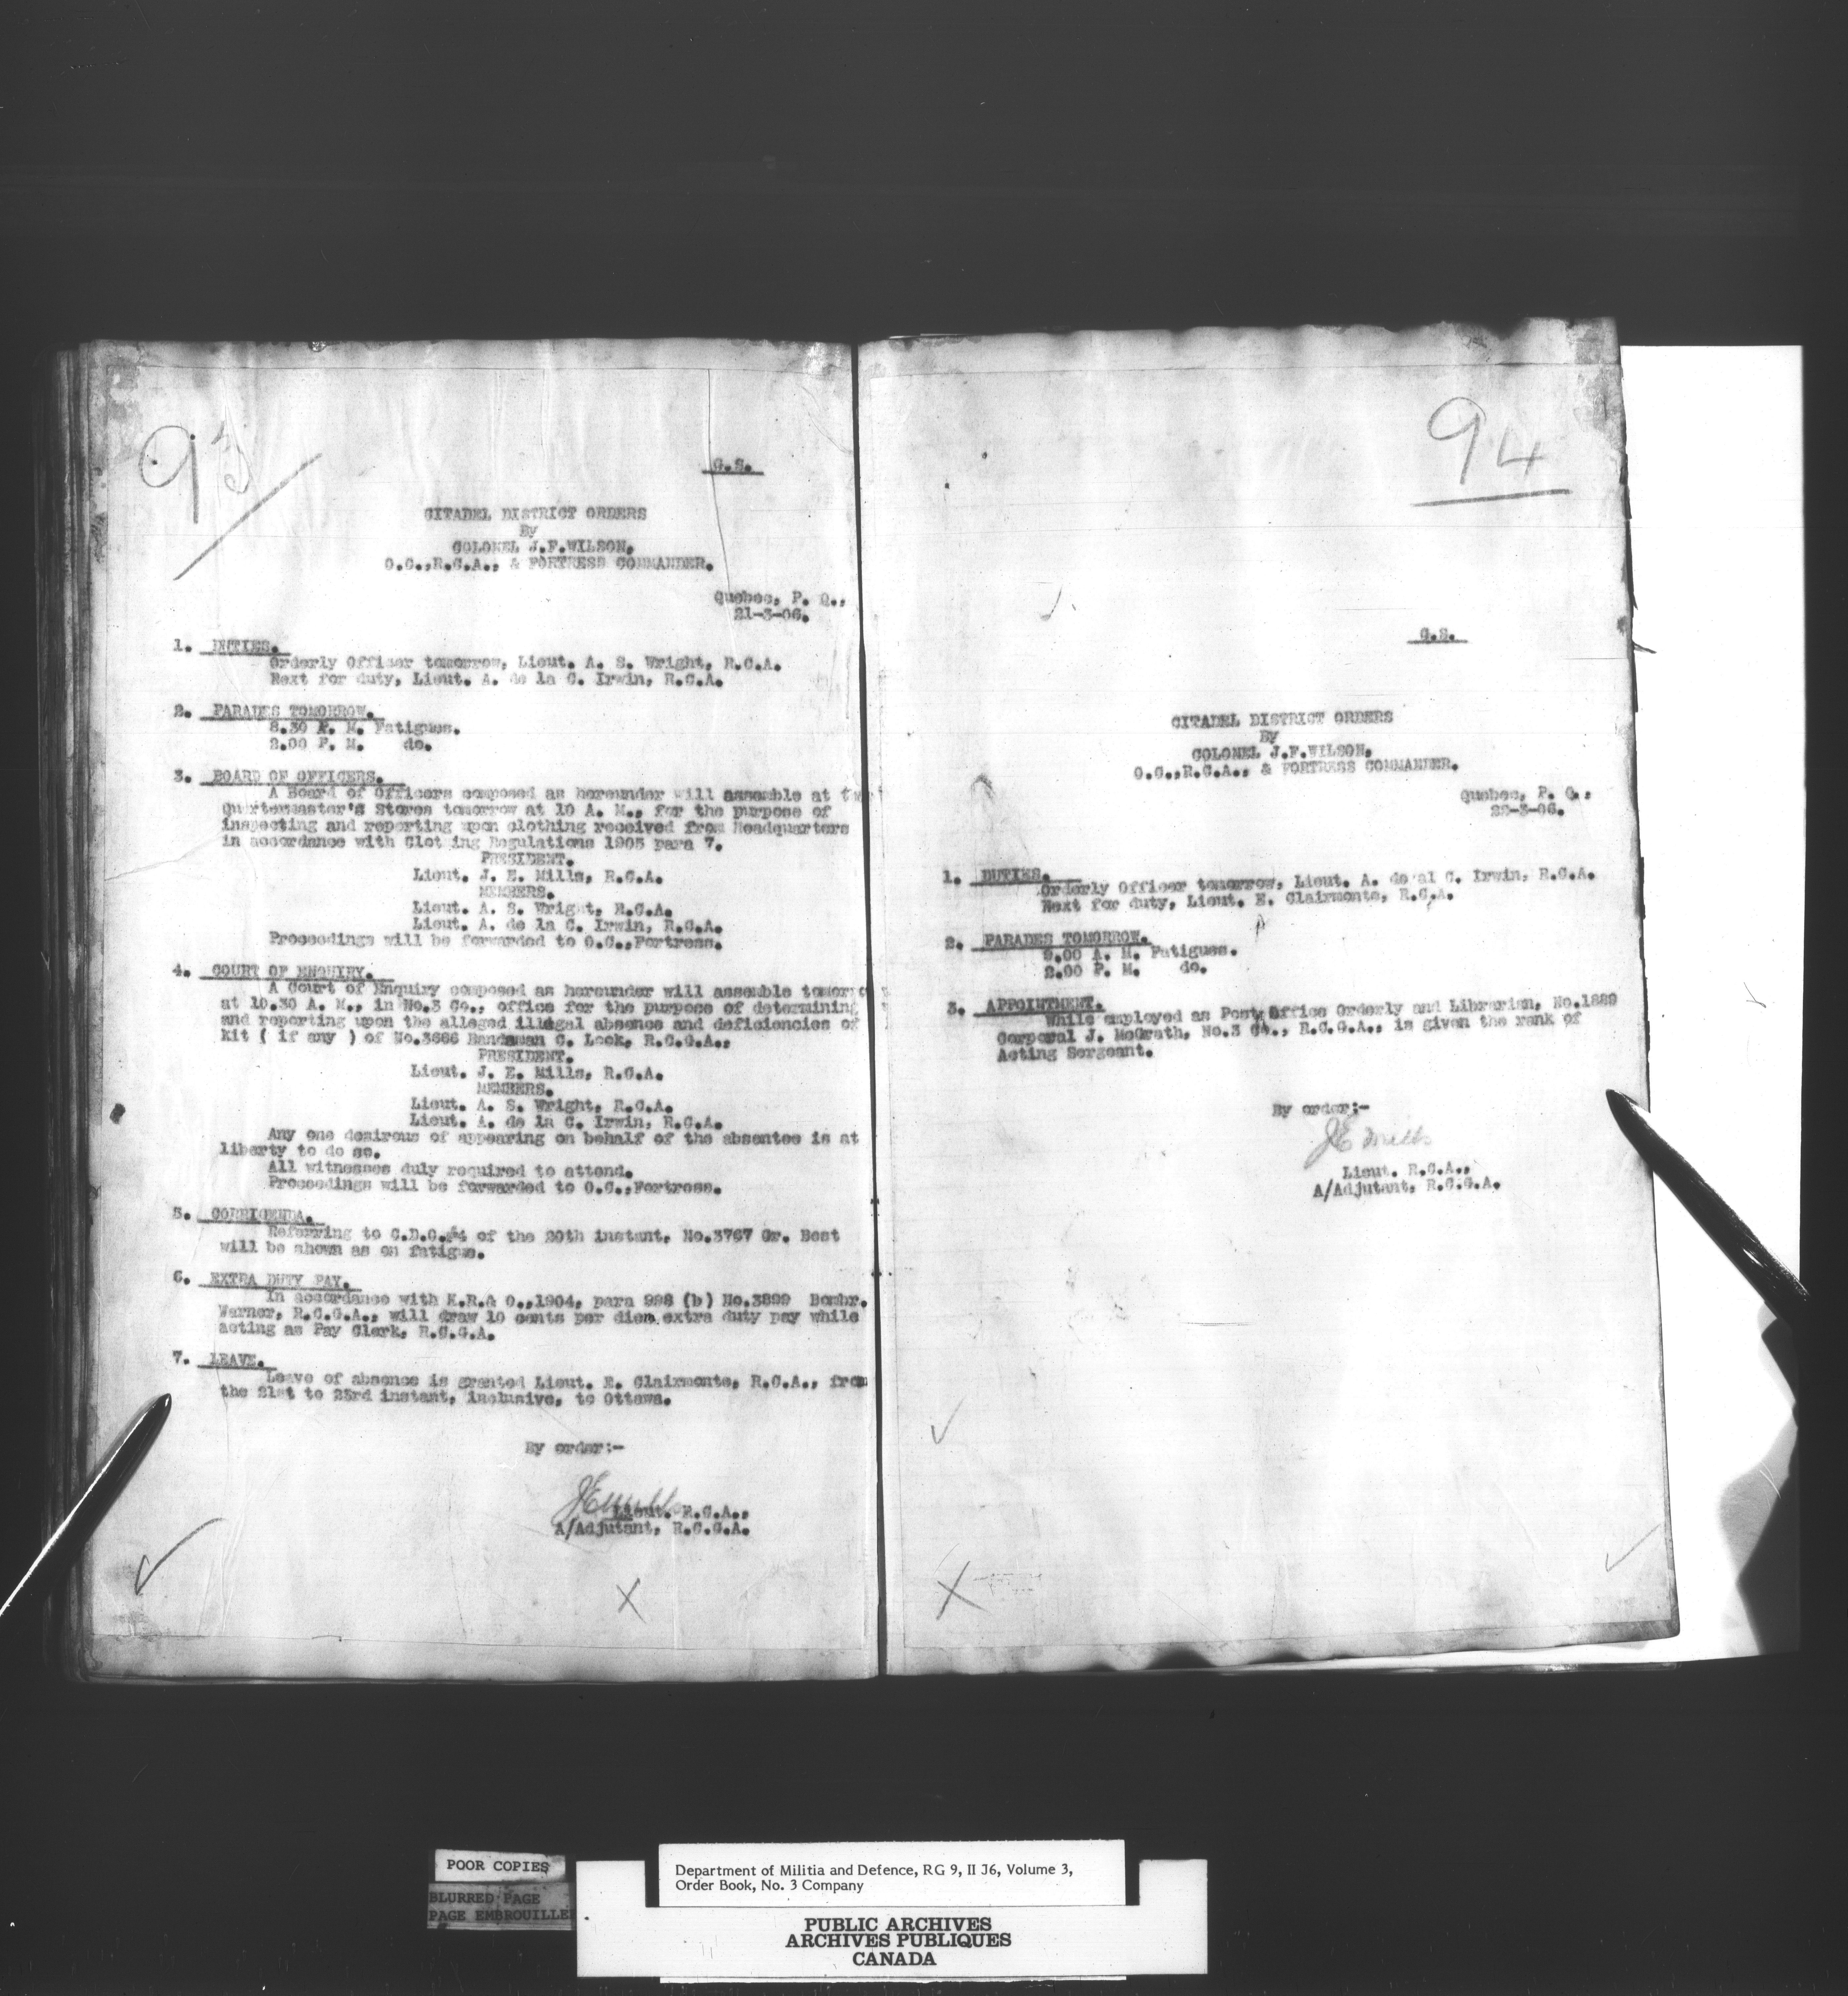 93
G.S.
CITADEL DISTRICT ORDERS
By
COLONEL J.F.WILSON,
O.C.,R.C.A., & FORTRESS COMMANDER.
Quebec, P. Q.,
21-3-06.
1. DUTIES.
Orderly Officer tomorrow, Lieut. A. S. Wright, R.C.A.
Next for duty, Lieut. A. de la C. Irwin, R.C.A.
2. PARADES TOMORROW.
8.30 P. M. Fatigues.
2.00 P. M. do.
3. BOARD OF OFFICERS.
A Board of Officers composed as hereunder will assemble at
Quartermaster's Stores tomorrow at 10 A. M., for the purpose of
inspecting and reporting upon clothing received from Headquarters
in accordance with Clot ing Regulations 1905 para 7.
PRESIDENT.
Lieut. J. E. Mills, R.C.A.
MEMBERS.
Lieut. A. S. Wright, R.C.A.
Lieut. A. de la C. Irwin, R.C.A.
Proceedings will be forwarded to O.C.,Fortress.
4. COURT OF ENQUIRY.
A Court of Enquiry composed as hereunder will assemble tomorro
at 10.30 A. M., in No.3 Co., office for the purpose of determining
and reporting upon the alleged illegal absence and deficiencies of
kit ( if any ) of No.3686 Bandsman C. Lock, R.C.G.A.,
PRESIDENT.
Lieut. J. E. Mills, R.C.A.
MEMBERS.
Lieut. A. S. Wright, R.C.A.
Lieut. A. de la C. Irwin, R.C.A.
Any one desirous of appearing on behalf of the absentee is at
liberty to do so.
All witnesses duly required to attend.
Proceedings will be forwarded to O.C.,Fortress.
5. CORRIGENDA.
Referring to C.D.O.#4 of the 20th instant, No.3767 Gr. Best
will be shown as on fatigue.
6. EXTRA DUTY PAY.
In accordance with K.R.& O.,1904, para 998 (b) No.3899 Bombr.
Warner, R.C.G.A., will draw 10 cents per diem extra duty pay while
acting as Pay Clerk, R.C.G.A.
7. LEAVE.
Leave of absence is granted Lieut. E. Clairmonte, R.C.A., from
the 21st to 23rd instant, inclusive, to Ottawa.
By order:-
JE Mills
Lieut. R.C.A.,
A/Adjutant, R.C.G.A.
94
G.S.
CITADEL DISTRICT ORDERS
By
COLONEL J.F.WILSON,
O.C.,R.C.A., & FORTRESS COMMANDER.
Quebec, P. Q.,
22-3-06.
1. DUTIES.
Orderly Officer tomorrow, Lieut. A. de al C. Irwin, R.C.A.
Next for duty, Lieut. E. Clairmonte, R.C.A.
2. PARADES TOMORROW.
9.00 A. M. Fatigues.
2.00 P. M. do.
3. APPOINTMENT.
While employed as Post Office Orderly and Librarian, No.1889
Corporal J. McGrath, No.3 Co., R.C.G.A., is given the rank of
Acting Sergeant.
By order:-
JE Mills
Lieut. R.C.A.,
A/Adjutant, R.C.G.A.
POOR COPIES
BLURRED PAGE
PAGE EMBROUILLE
Department of Militia and Defence, RG 9, II J6, Volume 3,
Order Book, No. 3 Company
PUBLIC ARCHIVES
ARCHIVES PUBLIQUES
CANADA